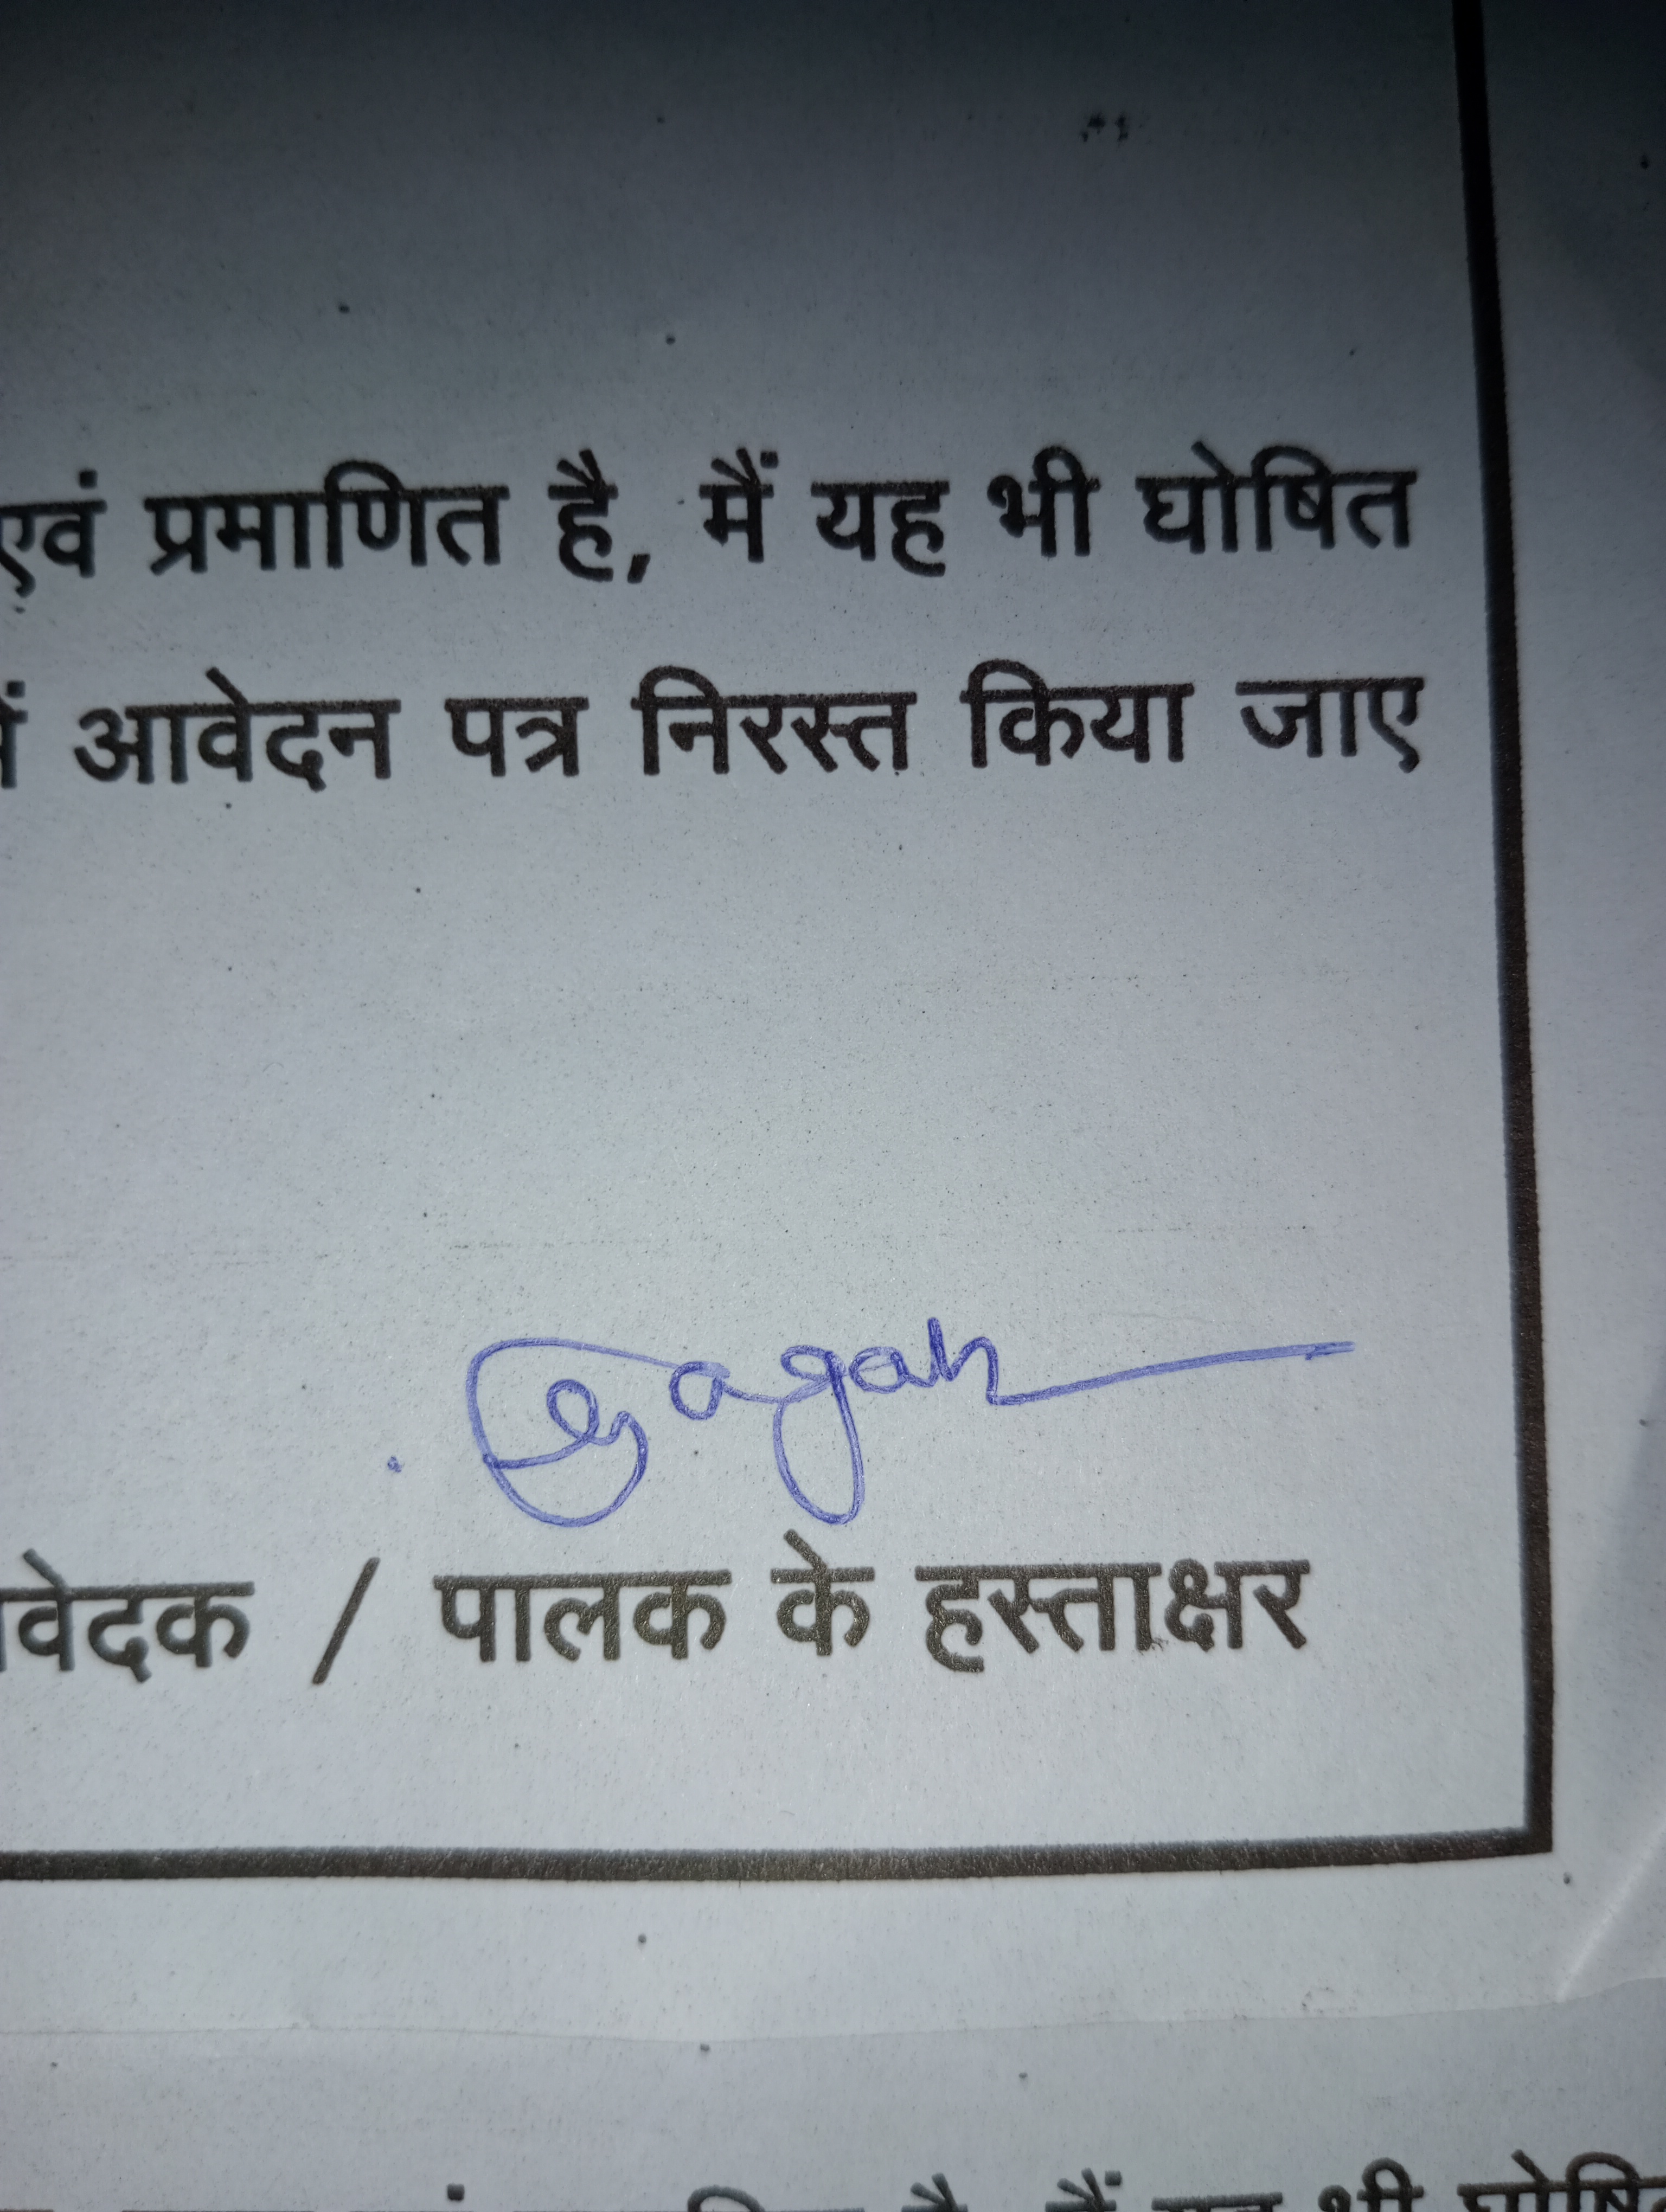 एवं प्रमाणित है, मैं यह भी घोषित
में आवेदन पत्र निरस्त किया जाए
Gagan
वेदक / पालक के हस्ताक्षर